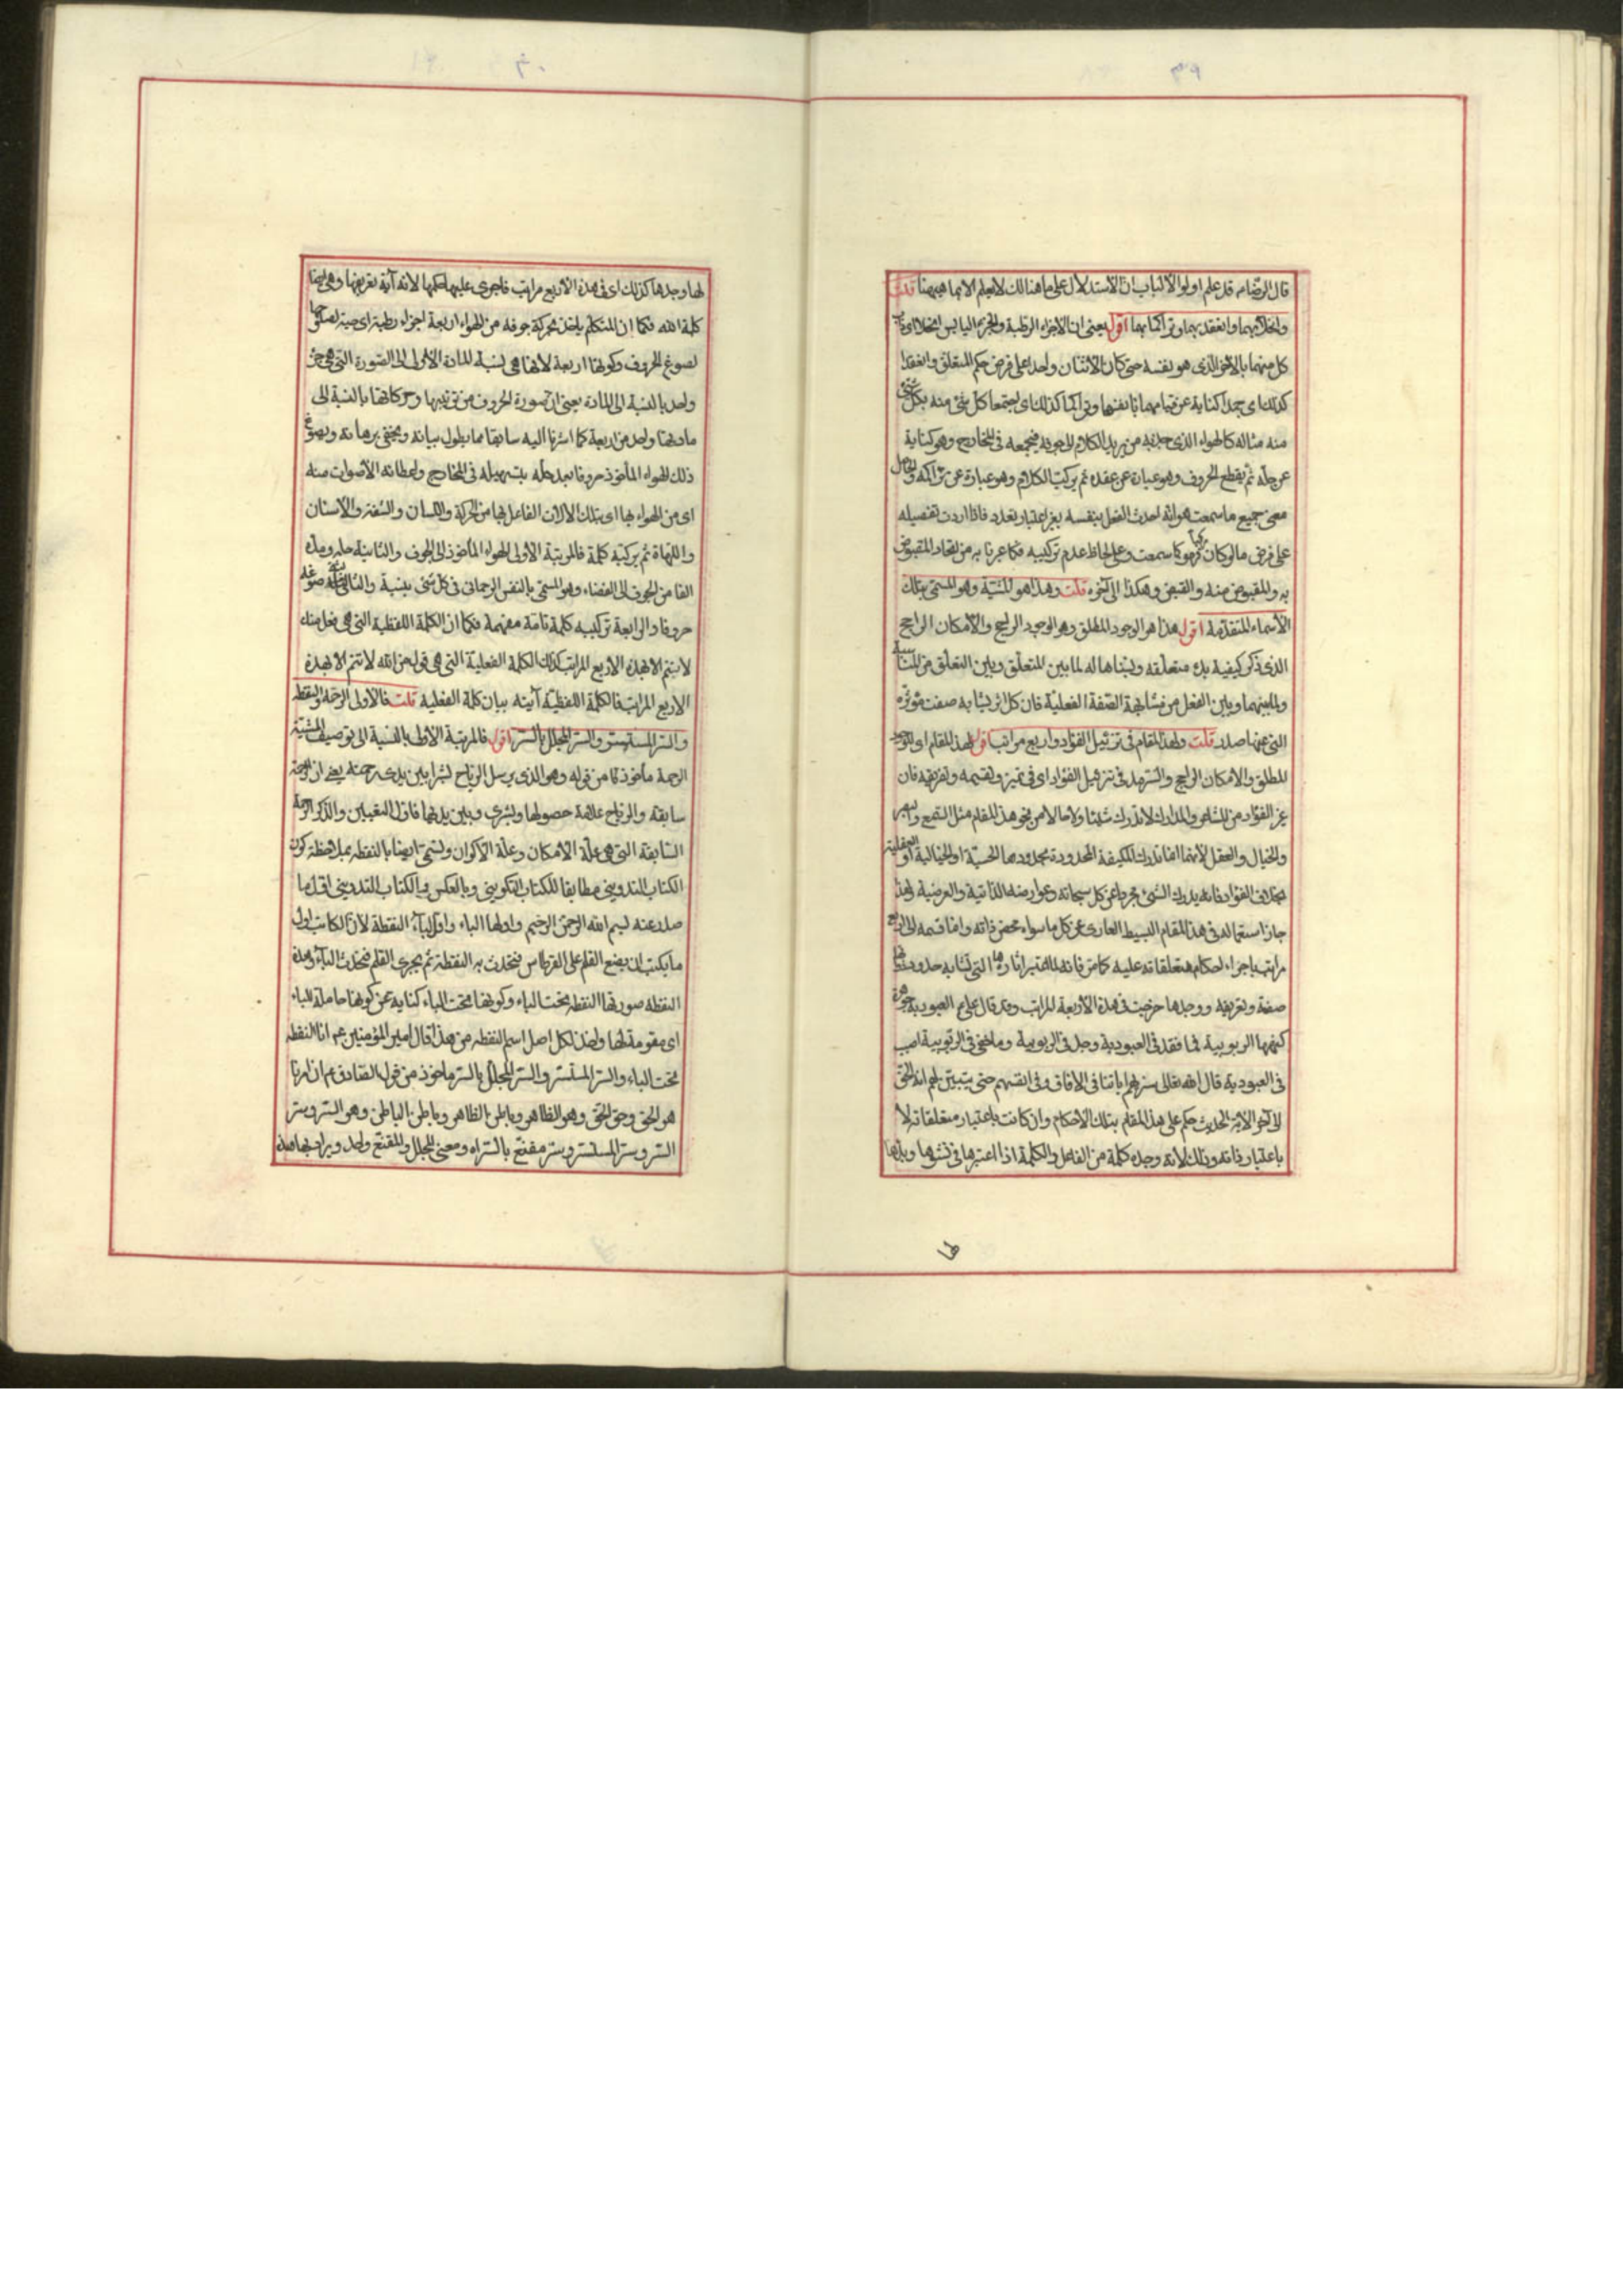 قال الرضا ع قد علم اولوا الألباب ان الأستدلال على ما هنالك لا يعلم الا بما هيهنا قلت
وانحلا بهما وانعقد بهما وتراكما بهما اقول يعنى ان الاجزاء الرطبة والجزء اليابس انحلا اى
كل منهما بالآخر الذى هو نفسه حتى كان الاثنان واحدا على فرض حكم المتعلق وانعقدا
كذلك اى جمدا كناية عن قيامهما بأنفسهما وتراكما كذلك اى اجتمعا كل شئ منه بكل شئ
منه مثاله كالهواء الذى جذبه من يريد الكلام الى جوفه فيجمعه فى المخارج وهو كناية
عن حله ثم يقطع الحروف وهو عبارة عن عقده ثم يركب الكلام وهو عبارة عن تراكمه والحاصل
معنى جميع ما سمعت هو انه احدث الفعل بنفسه بغير اعتبار تعدد فاذا اردت تفصيله
على فرض ما لو كان مركبا فهو كما سمعت وعلى لحاظ عدم تركيبه فكما عبرنا به من اتحاد المقبوض
به والمقبوض منه والقبض وهكذا الى آخره قلت وهذا هو المشية وهو المسمى بتلك
الأسماء المتقدمة اقول هذا هو الوجود المطلق وهو الوجود الراجح والامكان الراجح
الذى ذكر كيفية بدء متعلقه ونسبناها له لما بين المتعلق وبين التعلق من المناسبة
ولما بينهما وبين الفعل من مشابهة الصفة الفعلية فان كل اثر يشابه صفت مؤثره
التى عنها صدر قلت ولهذا المقام فى تزئيل الفؤاد اربع مراتب اقول لهذا المقام اى الوجود
المطلق والامكان الراجح والسرمد فى تزئيل الفؤاد اى فى تميزه وتقسيمه وتفريقه فان
غير الفؤاد من المشاعر والمدارك لا تدرك شيئا ولا حالا من نحو هذا المقام مثل السمع والبصر
والخيال والعقل لانها انما تدرك المكيفة المحدودة بحدودها الحسية او الخيالية او العقلية
بخلاف الفؤاد فانه يدرك الشئ مجردا عن كل سبحاته وعوارضه الذاتية والعرضية لهذا
جاز استعماله فى هذا المقام البسيط العارى عن كل ما سواء محض ذاته وانما قسمه الى اربع
مراتب باجراء احكام متعلقاته عليه كما مر فانه لما اعتبر اثارها التى تشابه حدودها
صفة وتعريفه ووجدها خرجت فى هذه الأربعة المراتب وقد قال على ع العبودية جوهرة
كنهها الربوبية فما فقد فى العبودية وجد فى الربوبية وما خفى فى الربوبية اصيب
فى العبودية قال الله تعالى سنريهم اياتنا فى الافاق وفى انفسهم حتى يتبين لهم انه الحق
الى آخر الاية الحديث حكم على هذا المقام بتلك الاحكام وان كانت باعتبار متعلقاته لا
باعتبار ذاته وذلك لانه وجده كلمة من الفاعل والكلمة اذا اعتبرها فى نشوها وبدئها
لها
لها وجدها كذلك اى فى هذه الأربع مراتب فاجرى عليها حكمها لانه آية تعريفها وهى ايضا
كلمة الله فكما ان المتكلم ياخذ بحركة جوفه من الهواء اربعة اجزاء رطبة اى حية لصلوحها
لصوغ الحروف وكونها اربعة لانها هى نسبة المادة الأولى الى الصورة التى هى جزء
واحد بالنسبة الى المادة يعنى ان صورة الحروف من ترتيبها وحركاتها بالنسبة الى
مادتها واحد من اربعة كما اشرنا اليه سابقا مما يطول بيانه ويخفى برهانه ويصوغ
ذلك الهواء المأخوذ حروفا بعد حله بتسهيله فى المخارج واعطائه الأصوات منه
اى من الهواء بها اى بتلك الالات الفاعل بها من الحركة واللسان والشفة والأسنان
واللهاة ثم يركبه كلمة فالمرتبة الأولى الهواء المأخوذ الى الجوف والثانية حله ومده
الفا من الجوف الى الفضاء وهو المسمى بالنفس الرحمانى فى كل شئ بنسبة والثالثة صوغه
حروفا والرابعة تركيبه كلمة تامة مفهمة فكما ان الكلمة اللفظية التى هى فعل منك
لا يتم الا بهذه الاربع المراتب كذلك الكلمة الفعلية التى هى قول من الله لا تتم الا بهذه
الاربع المراتب فالكلمة اللفظية آيته بيان كلمة الفعلية قلت فالأولى الرحمة والنقطه
والسر المستتر والسر المجلل بالسر اقول فالمرتبة الأولى بالنسبة الى توصيف المشية
الرحمة مأخوذ كما من قوله وهو الذى يرسل الرياح بشرا بين يدى رحمته يعنى ان الرحمة
سابقة والرياح علامة حصولها وبشرى وبين يديها فاول التعيين والذكر الرحمة
السابقة التى هى علة الامكان وعلة الأكوان وتسمى ايضا بالنقطه بملاحظة كون
الكتاب التدوينى مطابقا للكتاب التكوينى وبالعكس والكتاب التدوينى اول ما
صدر عنه بسم الله الرحمن الرحيم واولها الباء واول الباء النقطة لأن الكاتب اول
ما يكتب ان يضع القلم على القرطاس فتحدث به النقطة ثم يجرى القلم فتحدث الباء وهذه
النقطه صورتها النقطه تحت الباء وكونها تحت الباء كناية عن كونها حاملة الباء
اى مقومة لها ولهذا لكل اصل اسم النقطه من هذا قال امير المؤمنين ع انا النقطه
تحت الباء والسر المستسر والسر المجلل بالسر ماخوذ من قول الصادق ع ان امرنا
هو الحق وحق الحق وهو الظاهر وباطن الظاهر وباطن الباطن وهو السر وسر
السر وسر المستسر وسر مقنع بالسر اه ومعنى المجلل والمقنع واحد ويراد بها هذه